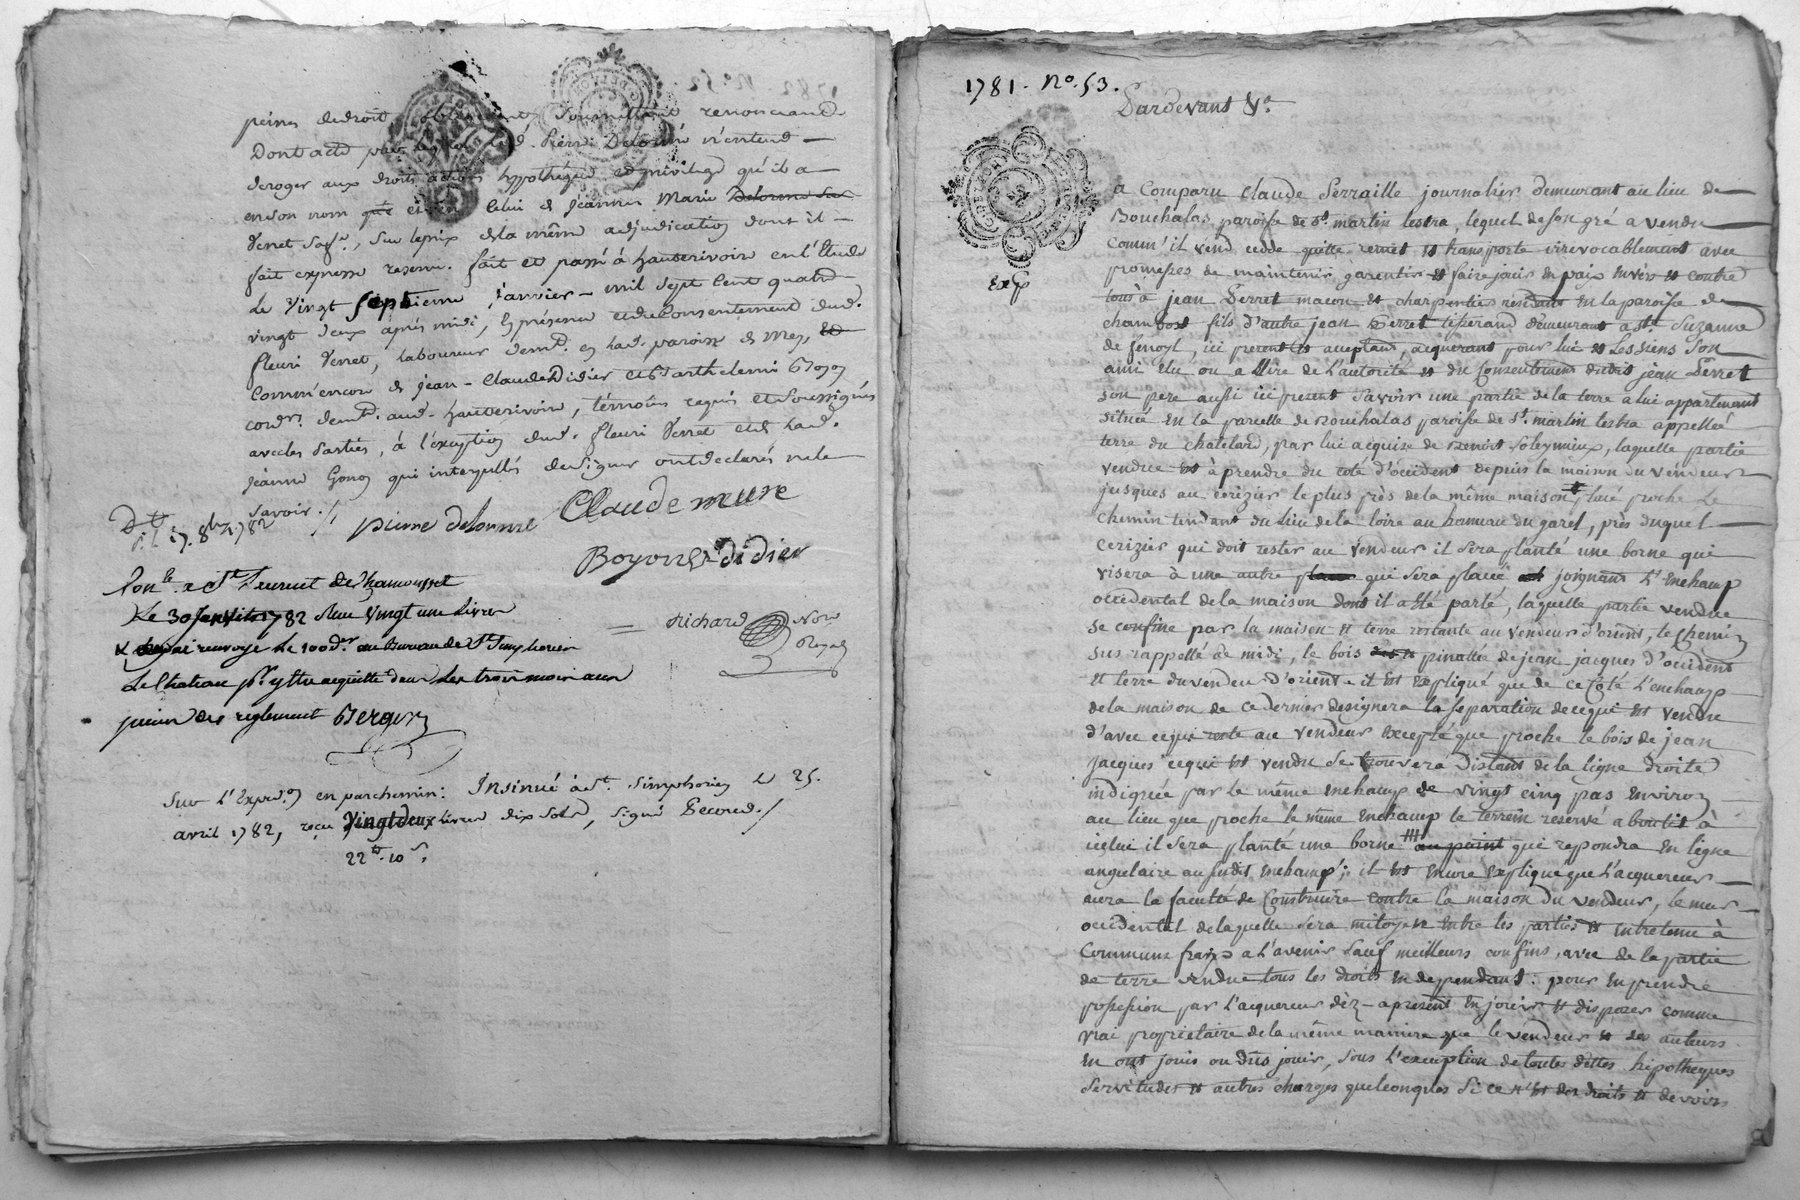 peines de droit obligeant, Soumettant renonceant
Dont acte par lequel led. Pierre Delorme n'entend
deroger aux droits actions hypothéque et privilege qu'il a
en son nom que celui de Jeanne Marie Delorme Sa
Verret Sa fe., Sur le prix de la même adjudication dont il
fait expresse reserve. fait et passé à hauterivoire en l'Etude
Le Vingt Septieme Janvier mil Sept Cent quatre
vingt deux après midi, En présence et du Consentement dud.
fleuri Verret, laboureur demt. en lad. paroisse de Mey, et
Comm'encore de jean-Claude Didier et Barthelemi Boyon
cordrs. demts. aud. hauterivoire, témoins requis et Soussignés
avec les Parties, à l'exception dud. fleuri Verret et de lad.
jeanne Gonon qui interpellés de signer ont declarés ne le
savoir ./.
pierre delorme
Claude mure
Dt. 17. 8bre 1782
Boyon
didier
Conle. a St. Laurent de Chamousset
Le 30 Janvier 1782 Reçu Vingt une livres
renvoyé Le 100er au bureau de St. Simphorien
Le Chateau pr. y etre acquitté dans Les trois mois aux
peines des reglement Berger
Richard
Nore
Royal
Sur L'Exped.on en parchemin: Insinué à St. Simphorien le 25.
avril 1782, reçu Vingt deux livres dix Sols, Signé Secoud ./
22 tt. 10 s.
1781. No. 53.
Pardevant &a
Exp
a Comparu Claude Serraille journalier demeurant au lieu de
Bouchalas paroisse de St. martin lestra, lequel de son gré a vendu
comm'il vend cedde quitte remet et transporte irrevocablement avec
promesses de maintenir garentir et faire jouir en paix envers et contre
tous à jean Perret macon et charpentier residant en la paroisse de
chambost fils d'autre jean Perret tisserand demeurant a Ste Suzanne
de fenoyl, ici present et acceptant, acquerant pour lui et Les Siens Son
ami élu ou a Elire de l'autorité et du Consentement dudit jean Perret
Son pere aussi ici present Savoir une partie de la terre a lui appartenant
située En la parcelle de Bouchalas paroisse de St. martin lestra appellée
terre du chatelard, par lui acquise de Benoit Soleymieux, laquelle partie
vendue est à prendre du coté d'occident depuis la maison du vendeur
jusques au cerizier le plus près de la même maison placé proche Le
chemin tendant du lieu de la loire au hameau du garel, près duquel
cerizier qui doit rester au vendeur il Sera planté une borne qui
visera à une autre qui Sera placée joignant L'Enchamp
occidental de la maison dont il a Eté parlé, laquelle partie vendue
se confine par la maison et terre restante au vendeur d'orient, le chemin
Sus rappellé de midi, le bois pinattée de jean jacques d'occident
et terre du vendeur d'orient. il Est Expliqué que de ce Coté L'enchamp
de la maison de ce dernier designera la Separation de ce qui Est vendu
d'avec ce qui reste au vendeur Excepté que proche le bois de jean
jacques ce qui Est vendu Se trouvera Distant de la ligne droite
indiquée par le même Enchamp de vingt cinq pas Environ
au lieu que proche le même Enchamp le terrein reservé aboutit à
icelui il Sera planté une borne au point qui repondra En ligne
angulaire au Susdit Enchamp; il Est Encore Expliqué que L'acquereur
aura la faculté de Construire contre la maison du vendeur, le mur
occidental de laquelle Sera mitoyen Entre les parties et Entretenu à
Communs fraix a L'avenir Sauf meilleurs confins, avec de la partie
de terre vendue tous les droits En dependant: pour En prendre
possession par L'acquereur dèz-apresent En jouir et disposer comme
vrai proprietaire de la même maniere que le vendeur et Ses auteurs
En ont joui ou dûs jouir, Sous L'exemption de toutes dettes hipotheques
Servitudes et autres charges quelconques Si ce n'Est des droits et devoirs